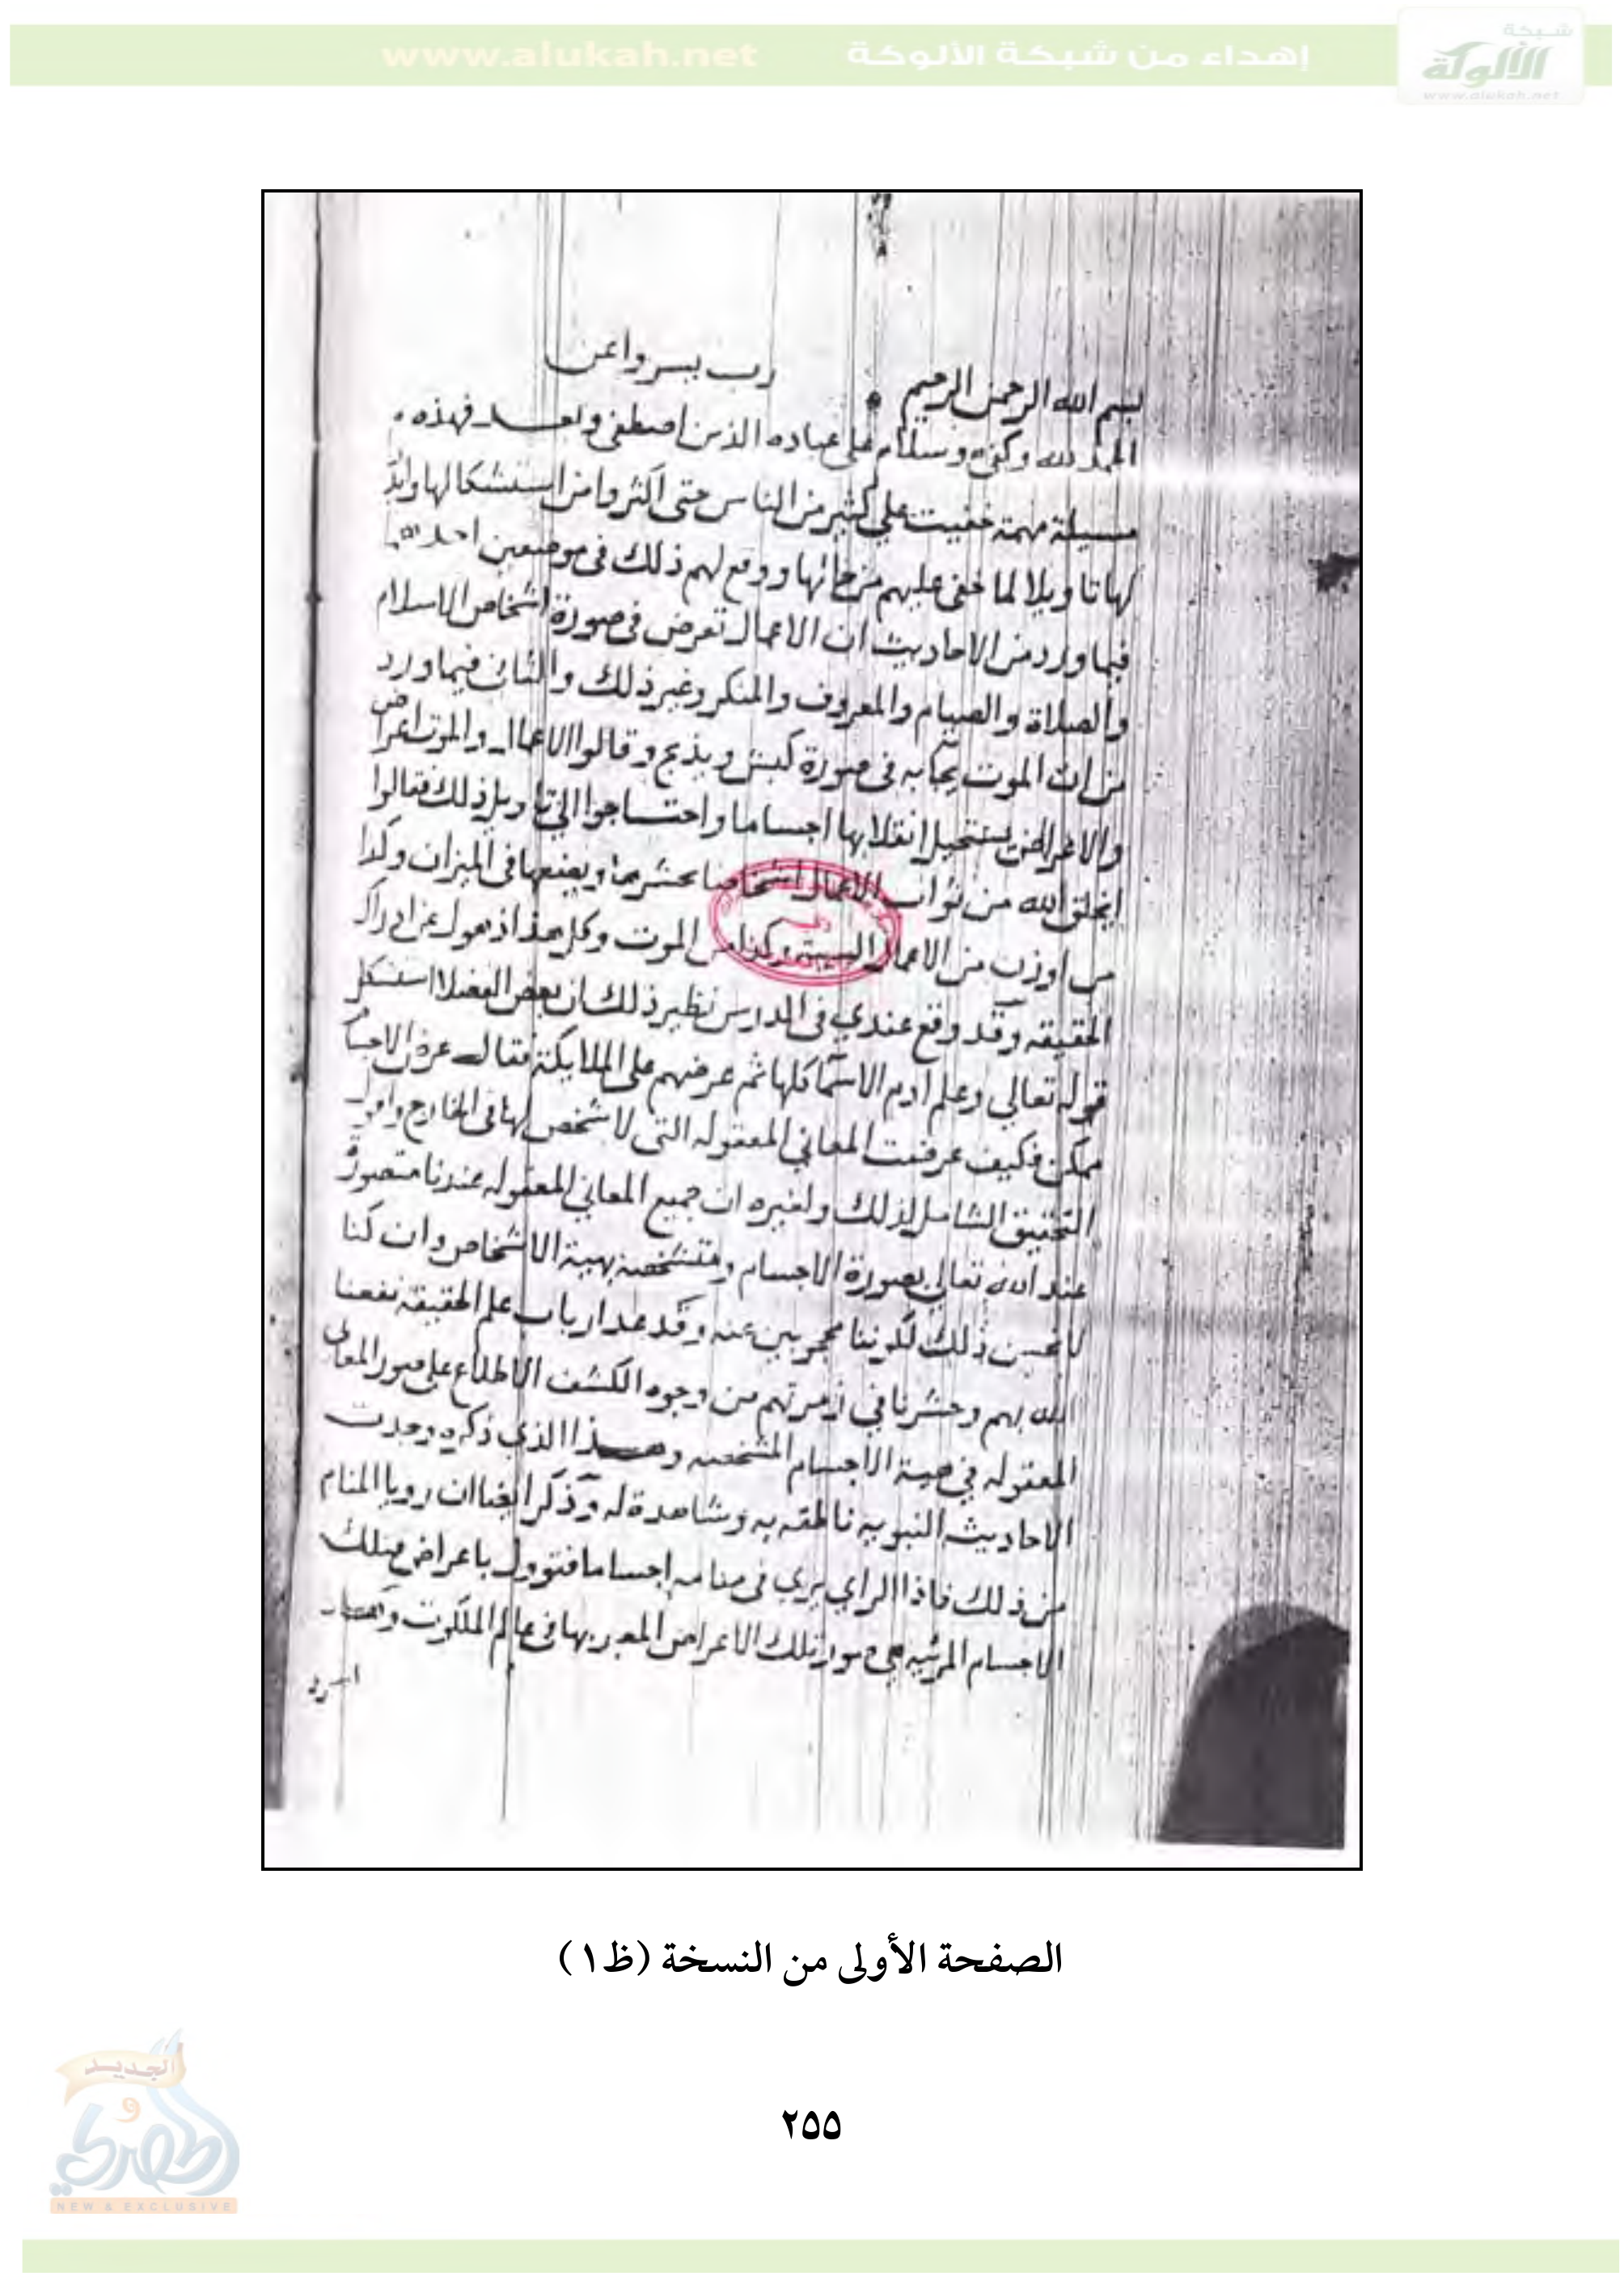 شبكة
الألوكة
www.alukah.net
إهداء من شبكة الألوكة
www.alukah.net
بسم الله الرحمن الرحيم رب يسر واعن
الحمد لله وكفى وسلام على عباده الذين اصطفى وبعد فهذه
مسيلة مهمة خفيت على كثير من الناس حتى اكثروا من استشكالها
لها تاويلا لما خفى عليهم من حالها ووقع لهم ذلك فى موضعين احدهما
فيما ورد من الاحاديث ان الاعمال تعرض فى صورة اشخاص الاسلام
والصلاة والصيام والمعروف والمنكر وغير ذلك والثانى فيما ورد
من ان الموت يجابه فى صورة كبش ويذبح وقالوا الاعمال والموت اعراض
والاعراض يستحيل انقلابها اجساما واحتاجوا الى تاويل ذلك فقالوا
يخلق الله من ثواب الاعمال اشخاصا يحشرها ويضعها فى الميزان وكذا
من الاعمال السيئة وكذا من الموت وكل هذا ذهول عن ادراك
الحقيقه وقد وقع عندي فى الدرس نظير ذلك ان بعض الفضلا استشكل
قوله تعالي وعلم ادم الاسما كلها ثم عرضهم على الملايكة فقال عرض الاجسام
ممكن فكيف عرضت المعاني المعقوله التى لا تشخص لها فى الخارج واقول
التحقيق الشامل لذلك ولغيره ان جميع المعاني المعقوله عندنا متصورة
عند الله تعالى بصورة الاجسام ومتشخصة بهيئة الاشخاص وان كنا
لا نحس ذلك لكوننا محجوبين عنه وقد عد ارباب علم الحقيقة نفعنا
الله بهم وحشرنا في زمرتهم من وجوه الكشف الاطلاع على صور المعاني
المعقوله في هيئة الاجسام المشخصه وهذا الذي ذكره وجدت
الاحاديث النبويه ناطقه به وشاهدة له وذكر ايضا ان رويا المنام
من ذلك فاذا الراي يري فى منامه اجساما فتوول باعراض فتلك
الاجسام المرئيه هي صور تلك الاعراض المعبر بها فى عالم الملكوت
الصفحة الأولى من النسخة (ظ١)
٢٥٥
الجديد
و
الحصري
NEW & EXCLUSIVE